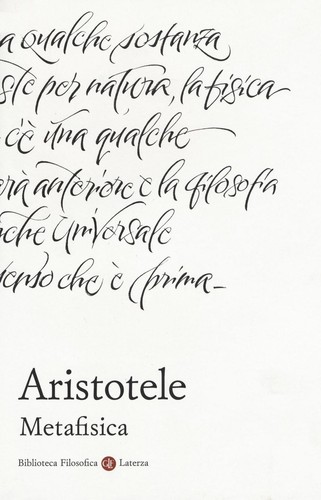 a qualche sostanza
ste per natura, la fisica
c'è una qualche
erà anteriore e la filosofia
nche universale
senso che è prima_
Aristotele
Metafisica
Biblioteca Filosofica Laterza